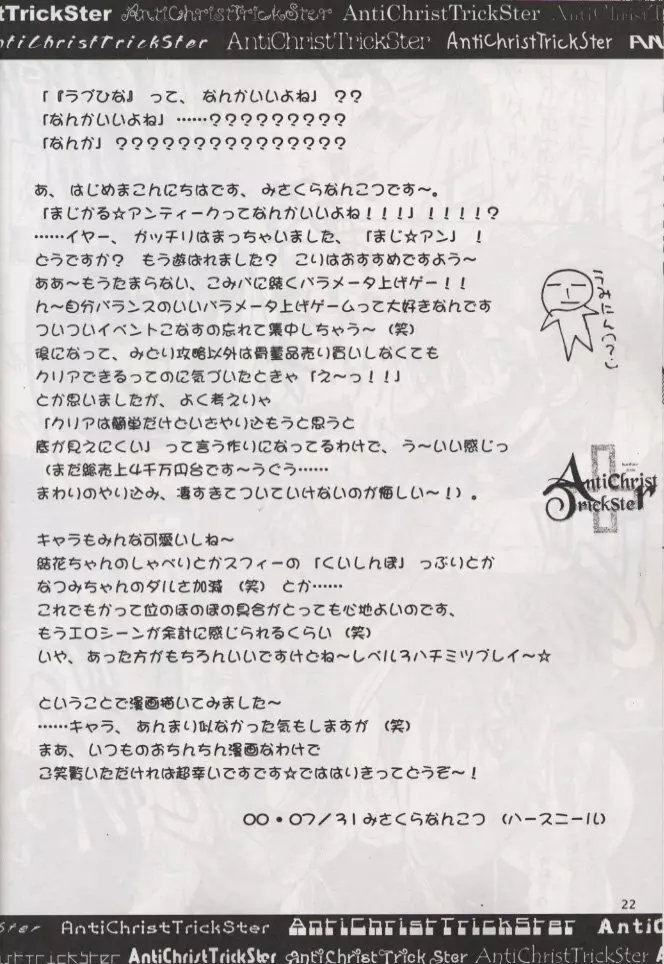 tTrickSter AntiChristTrickSter AntiChristTrickSter
ntiChristTrickSter AntiChristTrickSter AntiChristTrickSter AN
「『ラブひな』 って、 なんかいいよね」 ？？
「なんかいいよね」 ……？？？？？？？？？
「なんか」 ？？？？？？？？？？？？？？？
あ、 はじめまこんにちはです、 みさくらなんこつです～。
「まじかる☆アンティークってなんかいいよね！！！」 ！！！！？
……イヤー、 ガッチリはまっちゃいました、 「まじ☆アン」 ！
どうですか？ もう遊ばれました？ こりはおすすめですよう～
ああ～もうたまらない、 こみパに続くパラメータ上げゲー！！
ん～自分バランスのいいパラメータ上げゲームって大好きなんです
ついついイベントこなすの忘れて集中しちゃう～ （笑）
後になって、 みどり攻略以外は骨董品売り買いしなくても
クリアできるってのに気づいたときゃ 「え～っ！！」
とか思いましたが、 よく考えりゃ
「クリアは簡単だけどいざやり込もうと思うと
底が見えにくい」 って言う作りになってるわけで、 う～いい感じっ
（まだ総売上４千万円台です～うぐう……
まわりのやり込み、 凄すぎてついていけないのが悔しい～！） 。
うみにん（？）
AntiChrist
TrickSter
キャラもみんな可愛いしね～
結花ちゃんのしゃべりとかスフィーの 「くいしんぼ」 っぷりとか
なつみちゃんのダルさ加減 （笑） とか……
これでもかって位のほのぼの具合がとっても心地よいのです、
もうエロシーンが余計に感じられるくらい （笑）
いや、 あった方がもちろんいいですけどね～レベル３ハチミツプレイ～☆
ということで漫画描いてみました～
……キャラ、 あんまり似なかった気もしますが （笑）
まあ、 いつものおちんちん漫画なわけで
ご笑覧いただければ超幸いですです☆でははりきってどうぞ～！
００・０７／３１みさくらなんこつ （ハースニール）
22
AntiChristTrickSter AntiChristTrickSter AntiC
AntiChristTrickSter AntiChristTrickSter AntiChristTrickSter